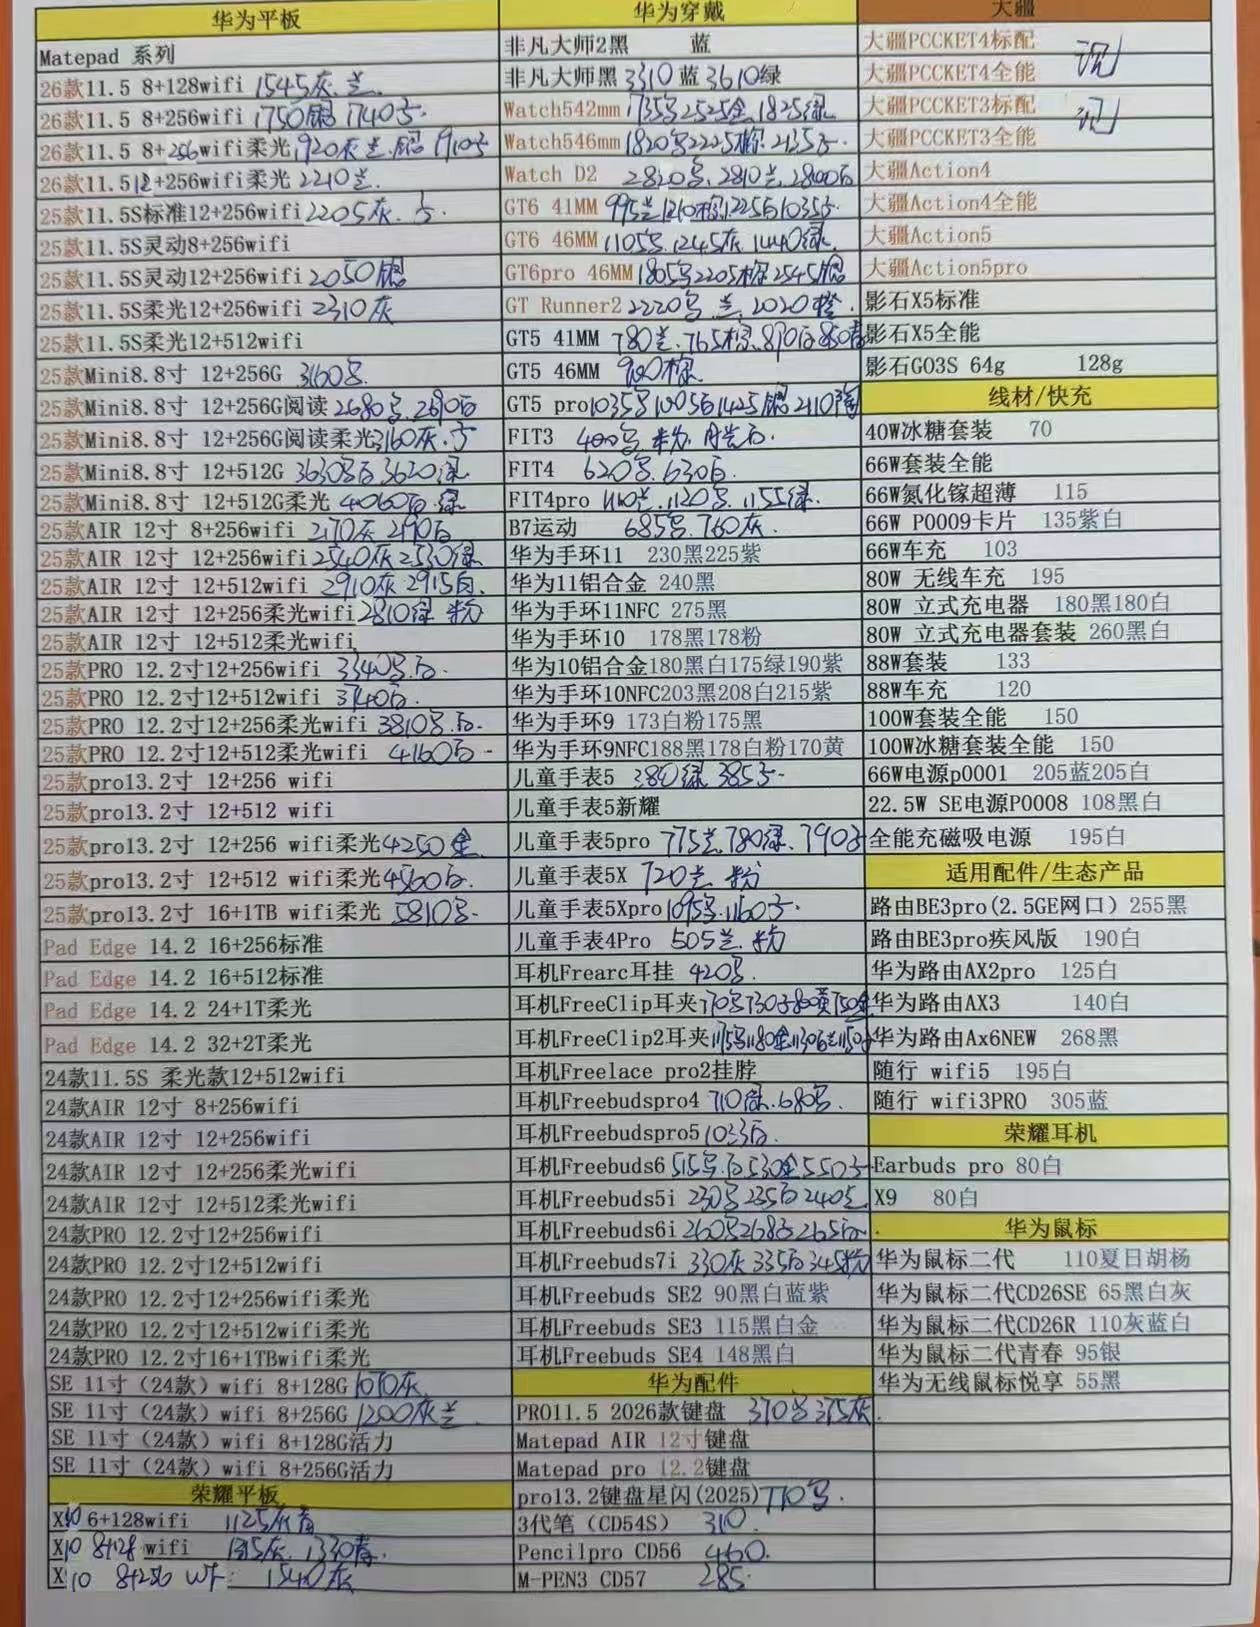 华为平板
Matepad 系列
26款11.5 8+128wifi 1545灰.兰.
26款11.5 8+256wifi 1750银 1740
26款11.5 8+256wifi柔光 1920灰兰.银
26款11.512+256wifi柔光 2210兰.
25款11.5S标准12+256wifi 2205灰.
25款11.5S灵动8+256wifi
25款11.5S灵动12+256wifi 2050银
25款11.5S柔光12+256wifi 2310灰
25款11.5S柔光12+512wifi
25款Mini8.8寸 12+256G 3160
25款Mini8.8寸 12+256G阅读 2680 2690白
25款Mini8.8寸 12+256G阅读柔光 3160灰.
25款Mini8.8寸 12+512G 3630 白 3620绿
25款Mini8.8寸 12+512G柔光 4060白.绿
25款AIR 12寸 8+256wifi 2170灰 2190白
25款AIR 12寸 12+256wifi 2540灰 2530绿
25款AIR 12寸 12+512wifi 2910灰 2915白.
25款AIR 12寸 12+256柔光wifi 2810绿 粉
25款AIR 12寸 12+512柔光wifi
25款PRO 12.2寸12+256wifi 3340 .白.
25款PRO 12.2寸12+512wifi 3740白.
25款PRO 12.2寸12+256柔光wifi 3810 .白.
25款PRO 12.2寸12+512柔光wifi 4160白
25款pro13.2寸 12+256 wifi
25款pro13.2寸 12+512 wifi
25款pro13.2寸 12+256 wifi柔光 4250金
25款pro13.2寸 12+512 wifi柔光 4560白.
25款pro13.2寸 16+1TB wifi柔光 5810
Pad Edge 14.2 16+256标准
Pad Edge 14.2 16+512标准
Pad Edge 14.2 24+1T柔光
Pad Edge 14.2 32+2T柔光
24款11.5S 柔光款12+512wifi
24款AIR 12寸 8+256wifi
24款AIR 12寸 12+256wifi
24款AIR 12寸 12+256柔光wifi
24款AIR 12寸 12+512柔光wifi
24款PRO 12.2寸12+256wifi
24款PRO 12.2寸12+512wifi
24款PRO 12.2寸12+256wifi柔光
24款PRO 12.2寸12+512wifi柔光
24款PRO 12.2寸16+1TBwifi柔光
SE 11寸（24款）wifi 8+128G 1070灰
SE 11寸（24款）wifi 8+256G 1200灰兰
SE 11寸（24款）wifi 8+128G活力
SE 11寸（24款）wifi 8+256G活力
荣耀平板
X10 6+128wifi 1125灰青
X10 8+128 wifi 1315灰. 1330青.
X10 8+256 1540灰
华为穿戴
非凡大师2黑 蓝
非凡大师黑 3310 蓝 3610绿
Watch542mm 1735 2525金.1825绿
Watch546mm 1820 2225棕. 2135
Watch D2 2820 . 2810兰. 2800白
GT6 41MM 995兰1210棕1225白1035
GT6 46MM 1105 .1245灰.1440绿.
GT6pro 46MM 1805 2205棕2545银
GT Runner2 2220 .兰. 2020橙.
GT5 41MM 780兰.765棕.890白850青
GT5 46MM 900棕.
GT5 pro 1035 1005白1425银2110陶
FIT3 400 .粉.
FIT4 620 .630白.
FIT4pro 1110兰.1120 .1155绿.
B7运动 685 .760灰.
华为手环11 230黑225紫
华为11铝合金 240黑
华为手环11NFC 275黑
华为手环10 178黑178粉
华为10铝合金180黑白175绿190紫
华为手环10NFC203黑208白215紫
华为手环9 173白粉175黑
华为手环9NFC188黑178白粉170黄
儿童手表5 380绿 385
儿童手表5新耀
儿童手表5pro 775兰.780绿.790
儿童手表5X 720兰 粉
儿童手表5Xpro 1095 .1160
儿童手表4Pro 505兰.粉
耳机Frearc耳挂 420
耳机FreeClip耳夹 770 730 800黄750金
耳机FreeClip2耳夹 1175 1180金1130 兰1150
耳机Freelace pro2挂脖
耳机Freebudspro4 710绿.680
耳机Freebudspro5 1033白.
耳机Freebuds6 515 .白530金550
耳机Freebuds5i 230 235白 240
耳机Freebuds6i 260 268 265白
耳机Freebuds7i 330灰 335白345粉
耳机Freebuds SE2 90黑白蓝紫
耳机Freebuds SE3 115黑白金
耳机Freebuds SE4 148黑白
华为配件
PRO11.5 2026款键盘 370 375灰
Matepad AIR 12寸键盘
Matepad pro 12.2键盘
pro13.2键盘星闪(2025) 770
3代笔（CD54S） 310
Pencilpro CD56 460.
M-PEN3 CD57 285
大疆
大疆PCCKET4标配
大疆PCCKET4全能
大疆PCCKET3标配
大疆PCCKET3全能
大疆Action4
大疆Action4全能
大疆Action5
大疆Action5pro
影石X5标准
影石X5全能
影石GO3S 64g 128g
线材/快充
40W冰糖套装 70
66W套装全能
66W氮化镓超薄 115
66W P0009卡片 135紫白
66W车充 103
80W 无线车充 195
80W 立式充电器 180黑180白
80W 立式充电器套装 260黑白
88W套装 133
88W车充 120
100W套装全能 150
100W冰糖套装全能 150
66W电源p0001 205蓝205白
22.5W SE电源P0008 108黑白
全能充磁吸电源 195白
适用配件/生态产品
路由BE3pro(2.5GE网口) 255黑
路由BE3pro疾风版 190白
华为路由AX2pro 125白
华为路由AX3 140白
华为路由Ax6NEW 268黑
随行 wifi5 195白
随行 wifi3PRO 305蓝
荣耀耳机
Earbuds pro 80白
X9 80白
华为鼠标
华为鼠标二代 110夏日胡杨
华为鼠标二代CD26SE 65黑白灰
华为鼠标二代CD26R 110灰蓝白
华为鼠标二代青春 95银
华为无线鼠标悦享 55黑